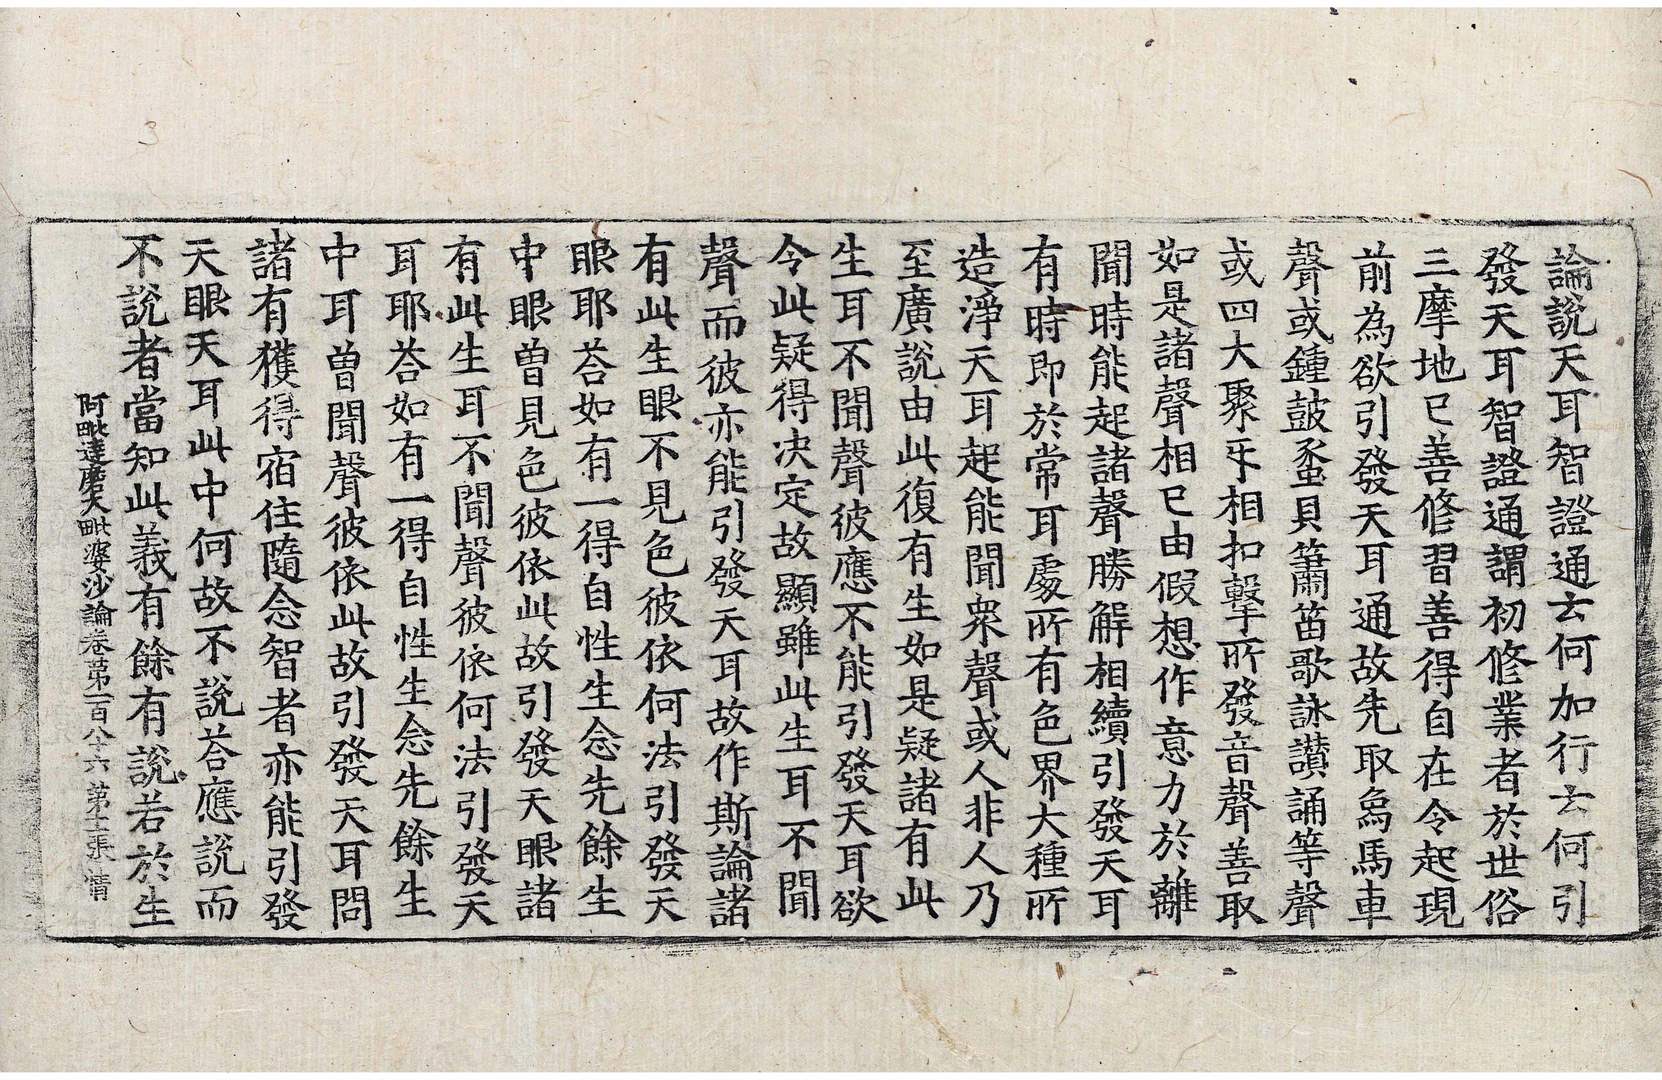 論說天耳智證通云何加行云何引
發天耳智證通謂初修業者於世俗
三摩地已善修習善得自在令起現
前為欲引發天耳通故先取象馬車
聲或鍾鼓螽貝簫笛歌詠讃誦等聲
或四大聚㸦相扣擊所發音聲善取
如是諸聲相已由假想作意力於離
聞時能起諸聲勝解相續引發天耳
有時即於常耳處所有色界大種所
造淨天耳起能聞衆聲或人非人乃
至廣說由此復有生如是疑諸有此
生耳不聞聲彼應不能引發天耳欲
令此疑得決定故顯雖此生耳不聞
聲而彼亦能引發天耳故作斯論諸
有此生眼不見色彼依何法引發天
眼耶荅如有一得自性生念先餘生
中眼曽見色彼依此故引發天眼諸
有此生耳不聞聲彼依何法引發天
耳耶荅如有一得自性生念先餘生
中耳曽聞聲彼依此故引發天耳問
諸有獲得宿住隨念智者亦能引發
天眼天耳此中何故不說荅應說而
不說者當知此義有餘有說若於生
阿毗達磨大毗婆沙論卷第一百八十六 第十二張 情